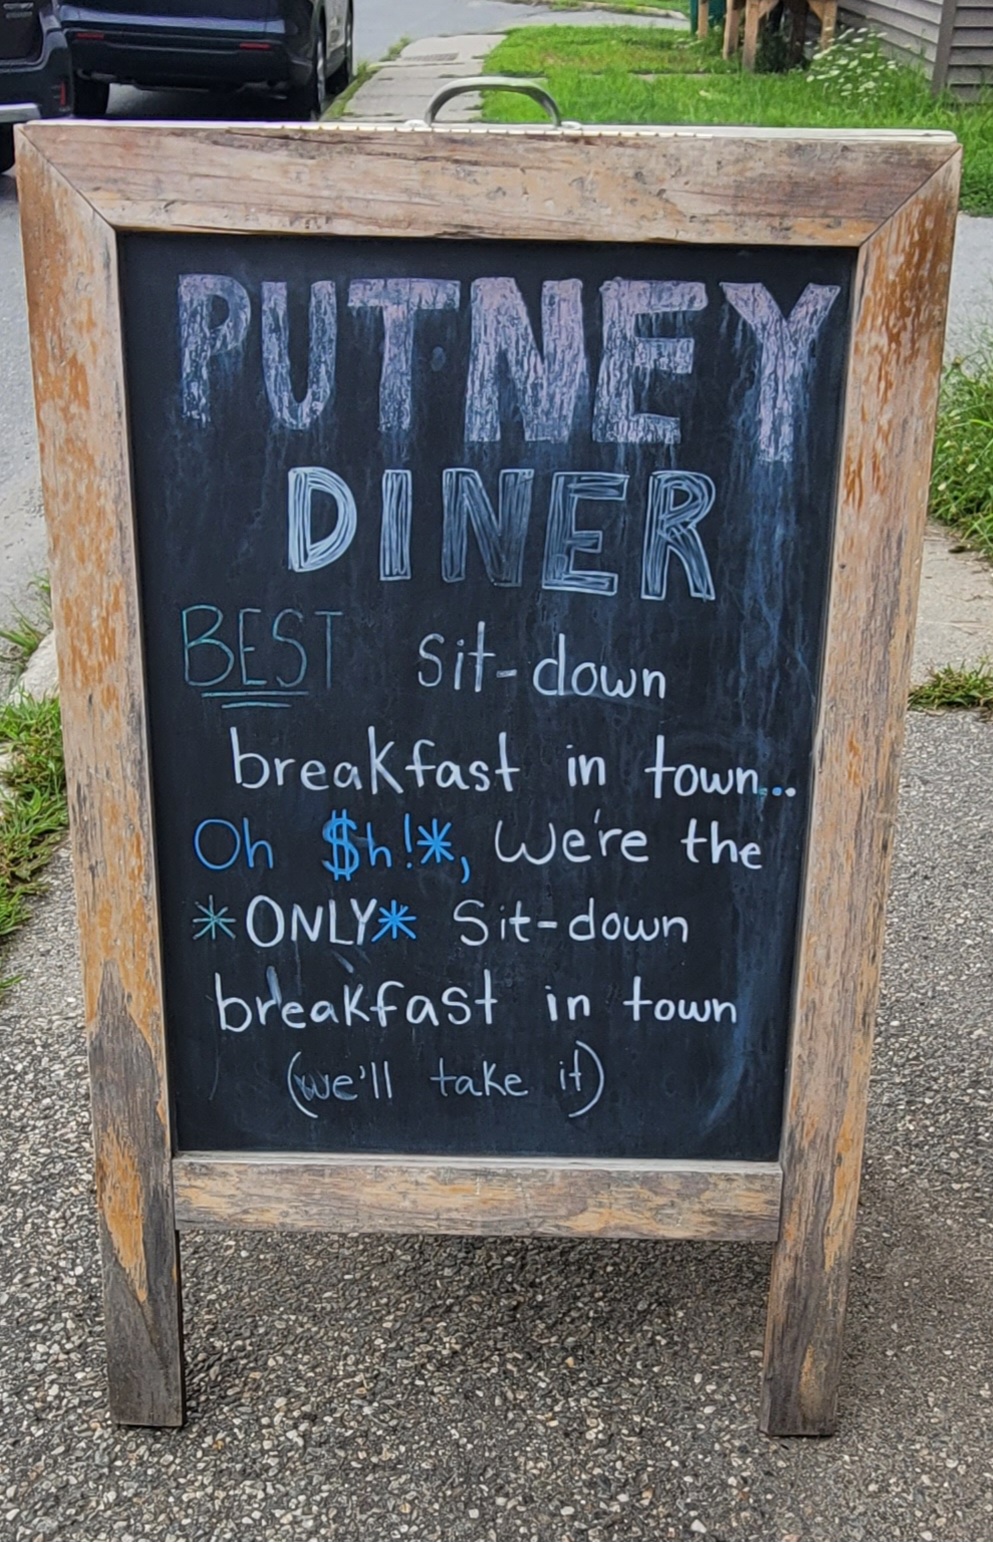 PUTNEY
DINER
BEST sit-down
breakfast in town...
Oh $h!*, We're the
*ONLY* Sit-down
breakfast in town
(we'll take it)